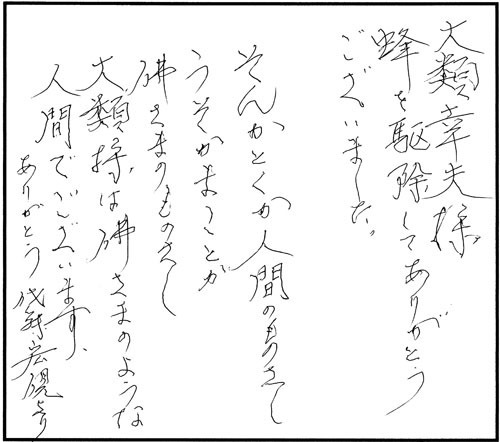 大類幸夫様
蜂を駆除してありがとう
ございました。
そんかとくか人間のものさし
うそかまことか
佛さまのものさし
大類様は佛さまのような
人間でございます、
ありがとう